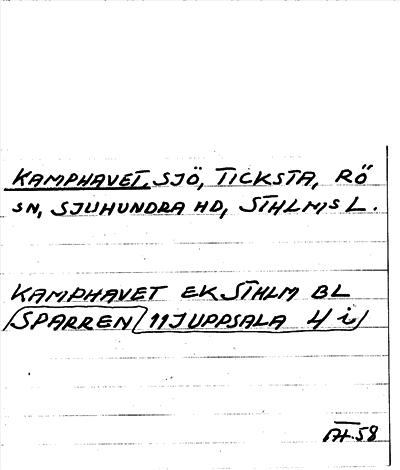 KAMPHAVET, SJÖ, TICKSTA, RÖ
SN, SJUHUNDRA HD, STHLMS L.
KAMPHAVET EK STHLM BL
(SPARREN) 11J UPPSALA 4 i
58